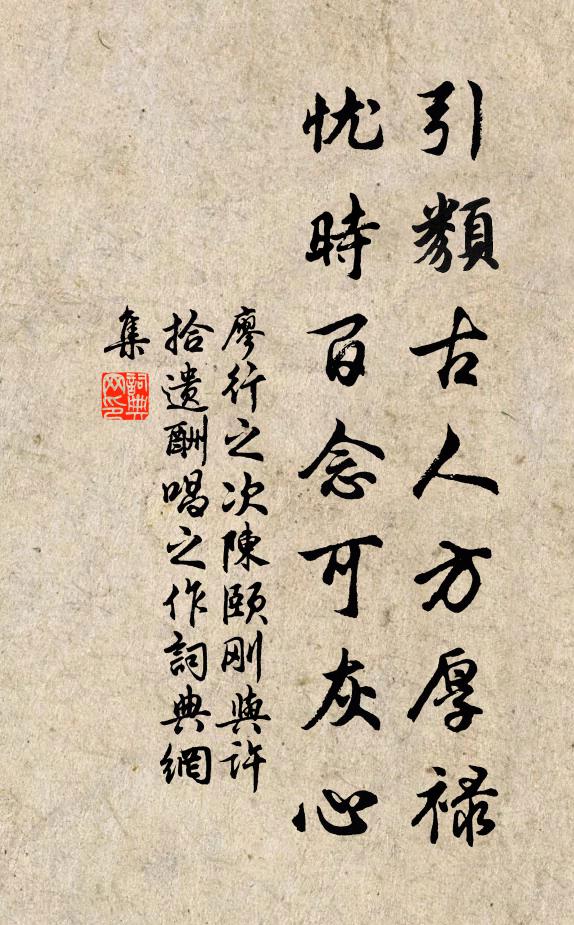 引類古人方厚祿
忧時百念可灰心
廖行之次陳頤刚與許
拾遺酬唱之作詞典網
集
詞典网印